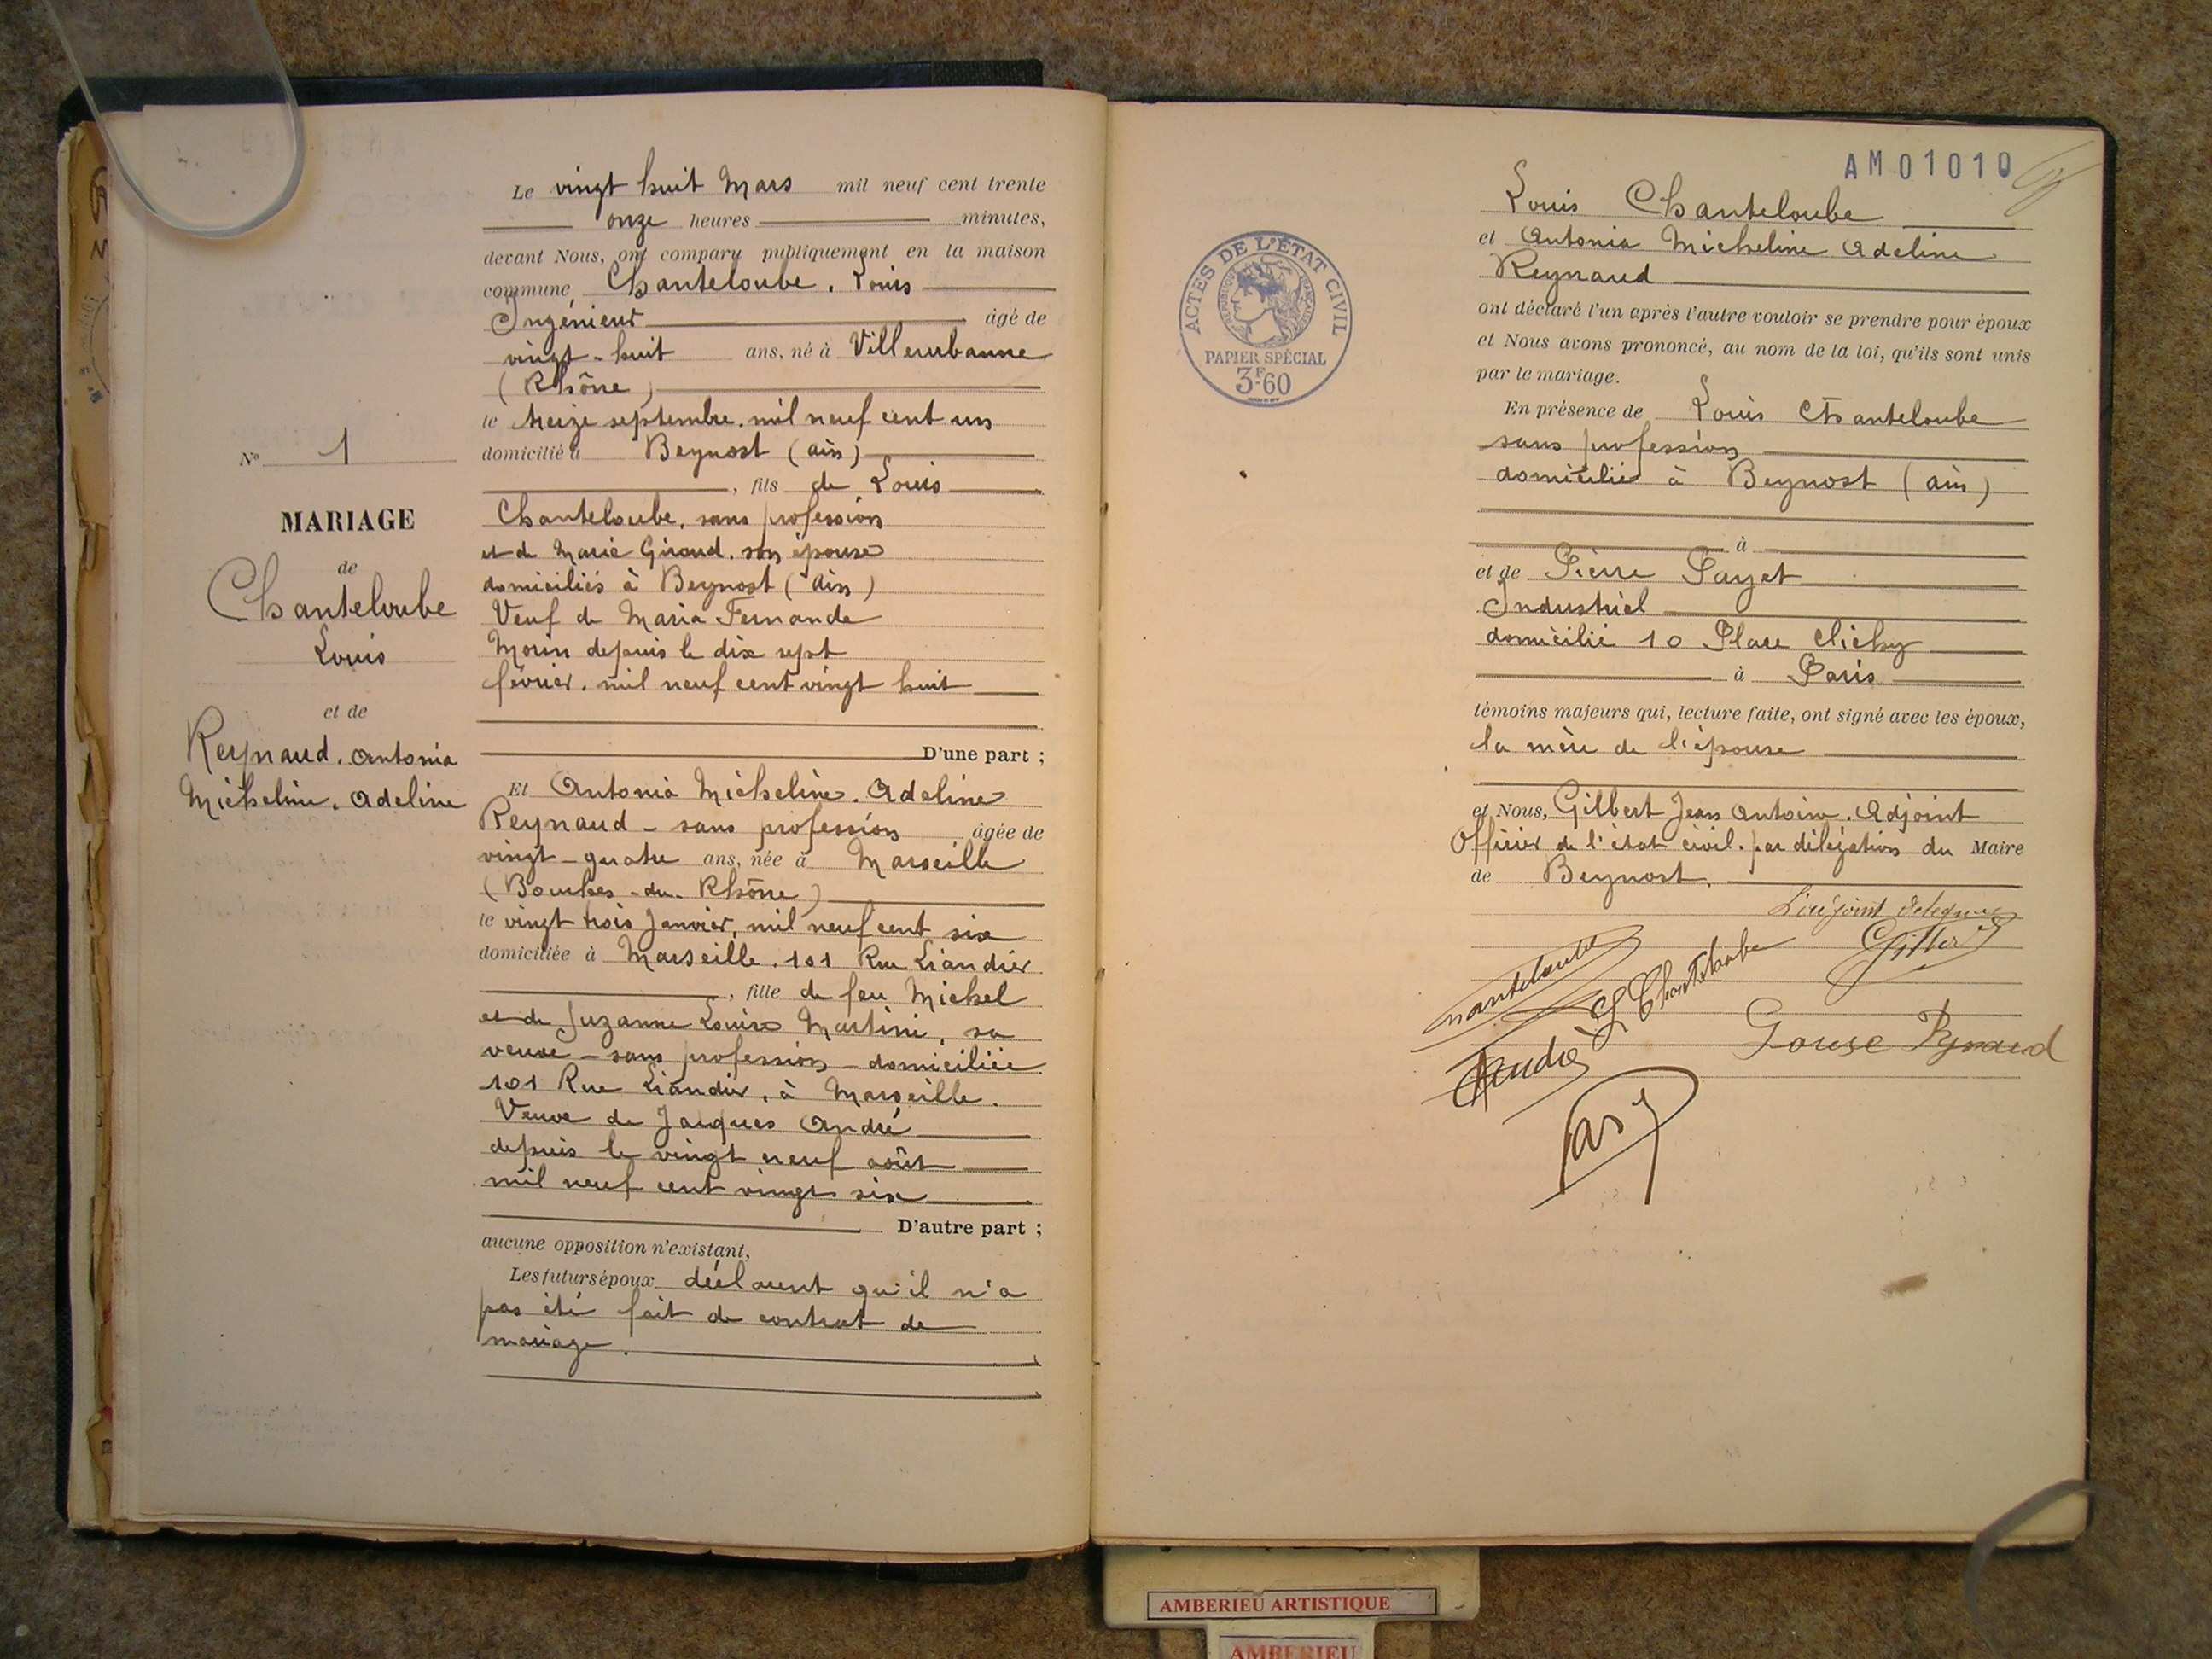 Le vingt huit Mars mil neuf cent trente
onze heures minutes,
devant Nous, ont comparu publiquement en la maison
commune, Chanteloube. Louis
Ingénieur âgé de
vingt-huit ans, né à Villeurbanne
(Rhône)
le treize septembre. mil neuf cent un
domicilié à Beynost (ain)
, fils de Louis
Chanteloube, sans profession
et de Marie Giraud. son épouse
domiciliés à Beynost (Ain)
Veuf de Maria Fernande
Morin depuis le dix sept
février. mil neuf cent vingt huit
D'une part ;
N° 1
MARIAGE
de
Chanteloube
Louis
et de
Reynaud. Antonia
Micheline. Adeline
Et Antonia Micheline. Adeline
Reynaud - sans profession âgée de
vingt-quatre ans, née à Marseille
(Bouches-du-Rhône)
le vingt trois Janvier, mil neuf cent six
domiciliée à Marseille. 101 Rue Liandier
, fille de feu Michel
et de Suzanne Louise Martini, sa
veuve - sans profession - domiciliée
101 Rue Liandier, à Marseille.
Veuve de Jacques André
depuis le vingt neuf août
mil neuf cent vingt six
D'autre part ;
aucune opposition n'existant,
Les futurs époux déclarent qu'il n'a
pas été fait de contrat de
mariage.
AM01010
ACTES DE L'ÉTAT CIVIL
RÉPUBLIQUE FRANÇAISE
PAPIER SPÉCIAL
3F60
Louis Chanteloube
et Antonia Micheline Adeline
Reynaud
ont déclaré l'un après l'autre vouloir se prendre pour époux
et Nous avons prononcé, au nom de la loi, qu'ils sont unis
par le mariage.
En présence de Louis Chanteloube
sans profession
domicilié à Beynost (ain)
à
et de Pierre Payet
Industriel
domicilié 10 Place Clichy
à Paris
témoins majeurs qui, lecture faite, ont signé avec les époux,
la mère de l'épouse
et Nous, Gilbert Jean Antoine. Adjoint
Officier de l'état civil. par délégation du Maire
de Beynost.
Chanteloube
L Chanteloube
Gilbert
André
AMBERIEU ARTISTIQUE
AMBERIEU